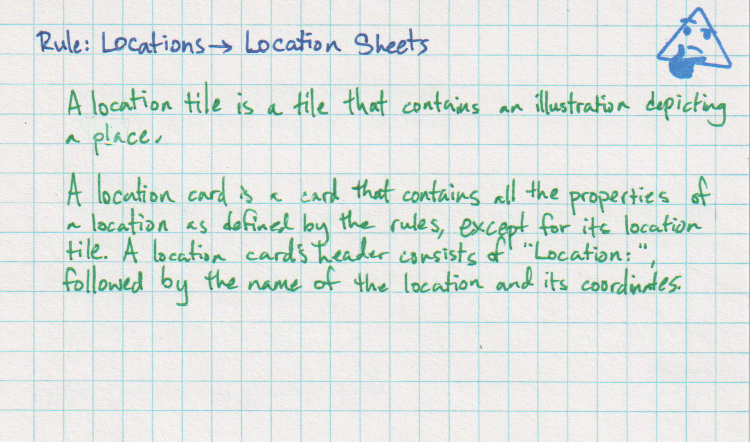 Rule: Locations → Location Sheets
A location tile is a tile that contains an illustration depicting
a place.
A location card is a card that contains all the properties of
a location as defined by the rules, except for its location
tile. A location card's header consists of "Location:",
followed by the name of the location and its coordinates.